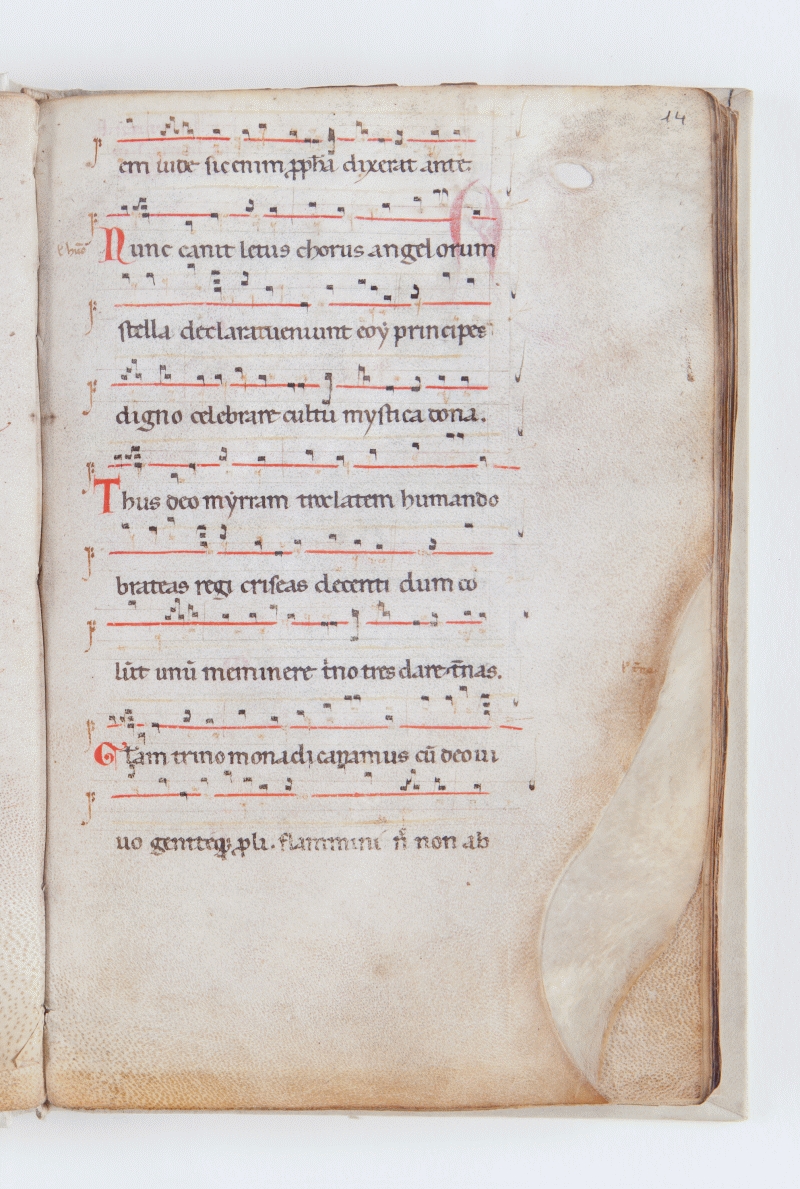 14
em uide sic enim ꝓph̄a dixerat ante.
Nunc canit letus chorus angelorum
stella declarat ueniunt eoy principes
digno celebrare cultū mystica dona.
Thus deo mẏrram
brateas regi criseas decenti dum co
lūt unū meminere t̄no tres dare t̄nas.
trino monadi canamus cū deo ui
uo genitoq; non ab